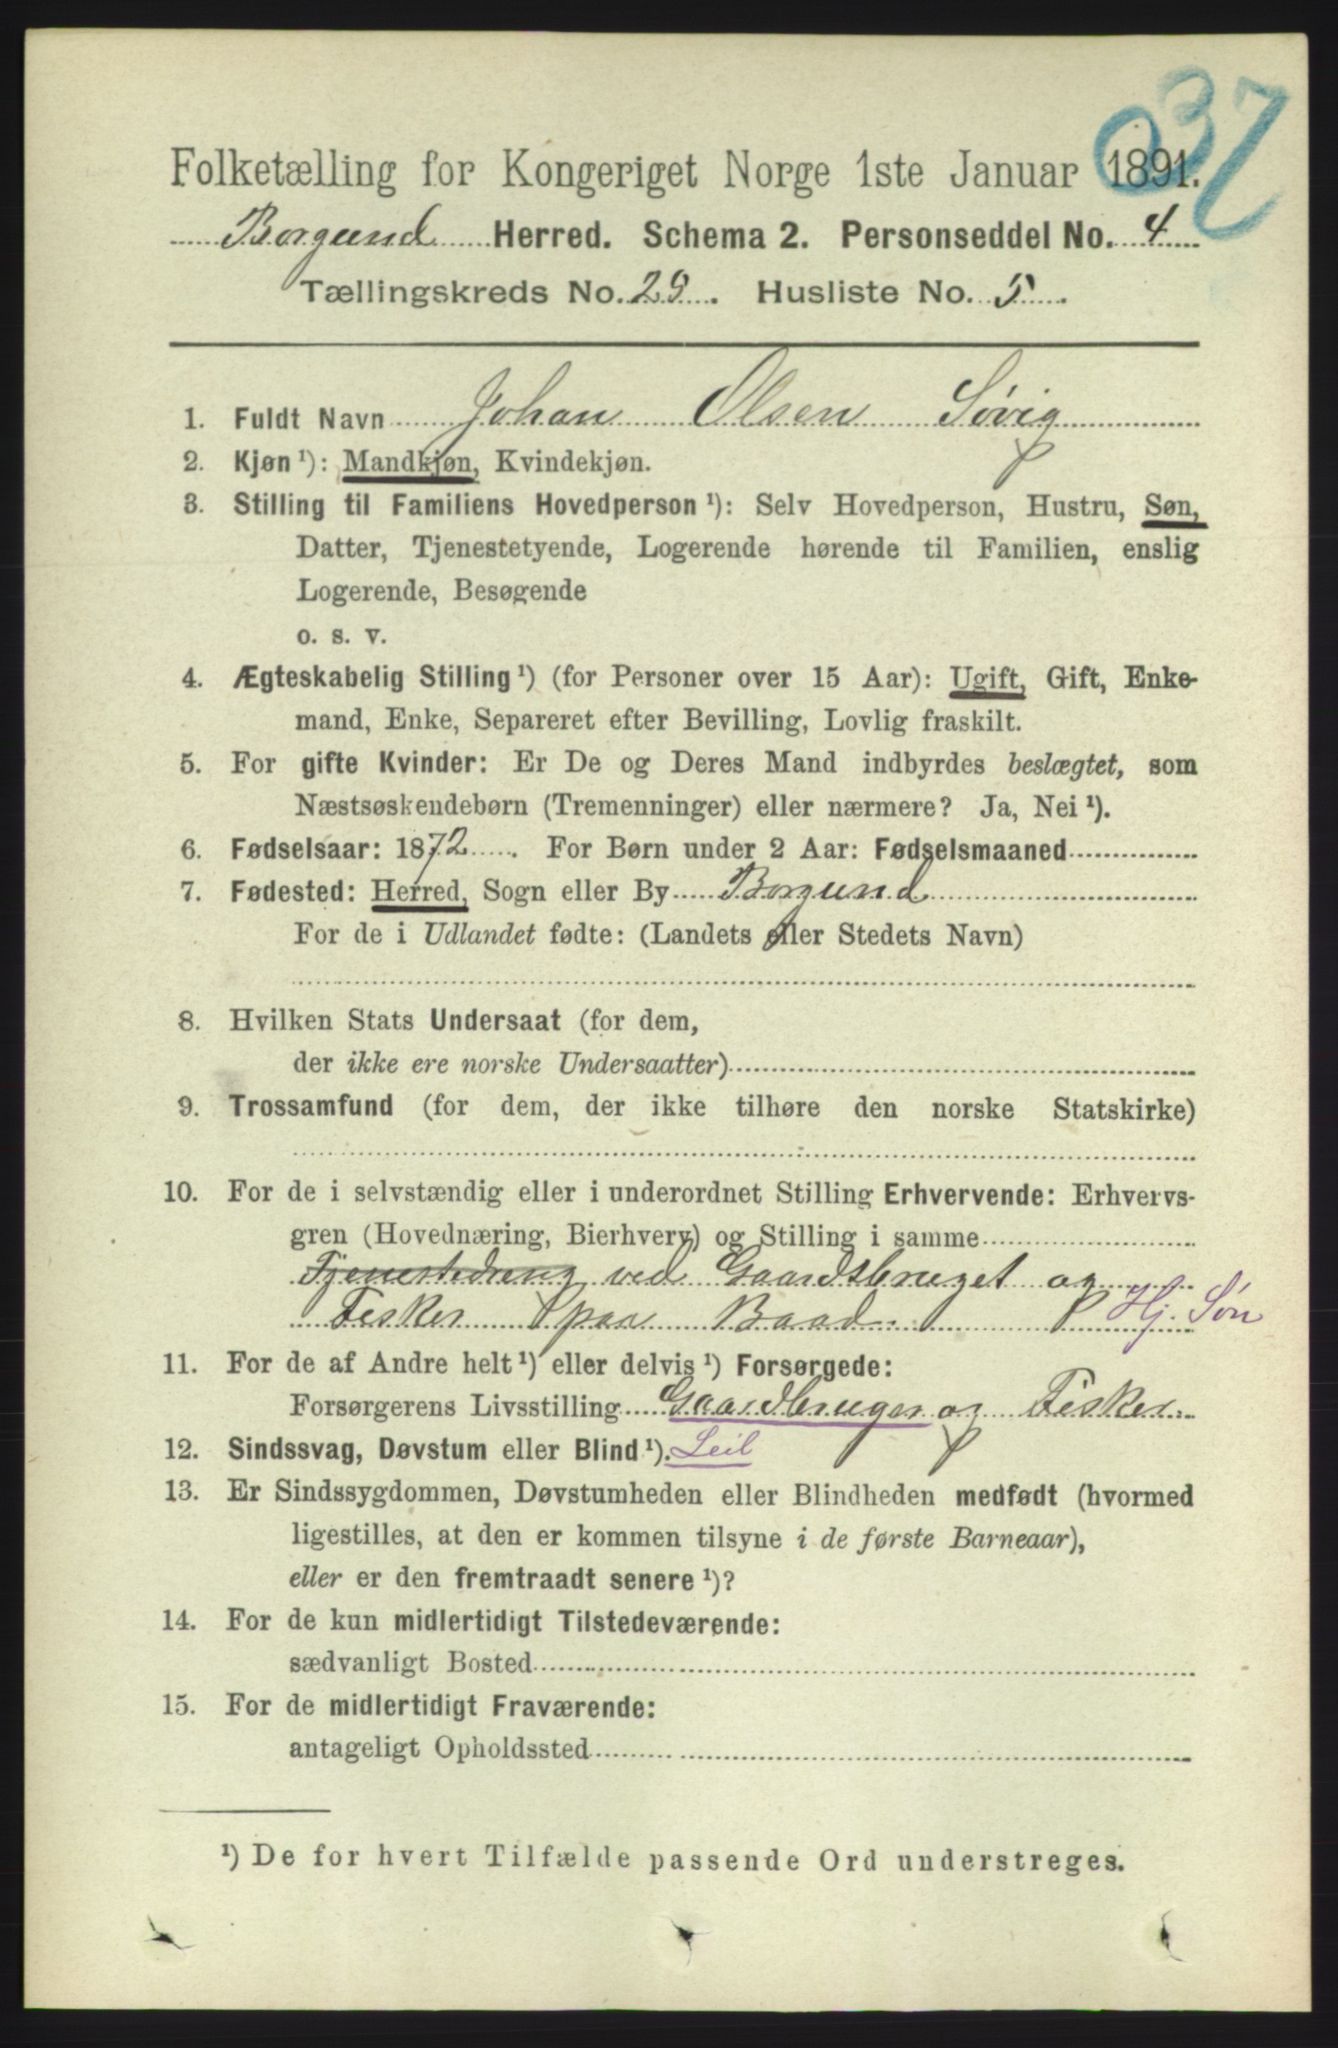 037
Folketælling for Kongeriget Norge 1ste Januar 1891.
Borgund Herred. Schema 2. Personseddel No. 4
Tællingskreds No. 29. Husliste No. 5.
1. Fuldt Navn Johan Olsen Søvig
2. Kjøn ¹): Mandkjøn, Kvindekjøn.
3. Stilling til Familiens Hovedperson ¹): Selv Hovedperson, Hustru, Søn,
Datter, Tjenestetyende, Logerende hørende til Familien, enslig
Logerende, Besøgende
o. s. v.
4. Ægteskabelig Stilling ¹) (for Personer over 15 Aar): Ugift, Gift, Enke-
mand, Enke, Separeret efter Bevilling, Lovlig fraskilt.
5. For gifte Kvinder: Er De og Deres Mand indbyrdes beslægtet, som
Næstsøskendebørn (Tremenninger) eller nærmere? Ja, Nei ¹).
6. Fødselsaar: 1872. For Børn under 2 Aar: Fødselsmaaned
7. Fødested: Herred, Sogn eller By Borgund
For de i Udlandet fødte: (Landets eller Stedets Navn)
8. Hvilken Stats Undersaat (for dem,
der ikke ere norske Undersaatter)
9. Trossamfund (for dem, der ikke tilhøre den norske Statskirke)
10. For de i selvstændig eller i underordnet Stilling Erhvervende: Erhvervs-
gren (Hovednæring, Bierhverv) og Stilling i samme
Tjenestedreng ved Gaardsbruget og
Fisker paa Baad. Hj. Søn
11. For de af Andre helt ¹) eller delvis ¹) Forsørgede:
Forsørgerens Livsstilling Gaardbruger og Fisker.
12. Sindssvag, Døvstum eller Blind ¹). Leil
13. Er Sindssygdommen, Døvstumheden eller Blindheden medfødt (hvormed
ligestilles, at den er kommen tilsyne i de første Barneaar),
eller er den fremtraadt senere ¹)?
14. For de kun midlertidigt Tilstedeværende:
sædvanligt Bosted
15. For de midlertidigt Fraværende:
antageligt Opholdssted
¹) De for hvert Tilfælde passende Ord understreges.